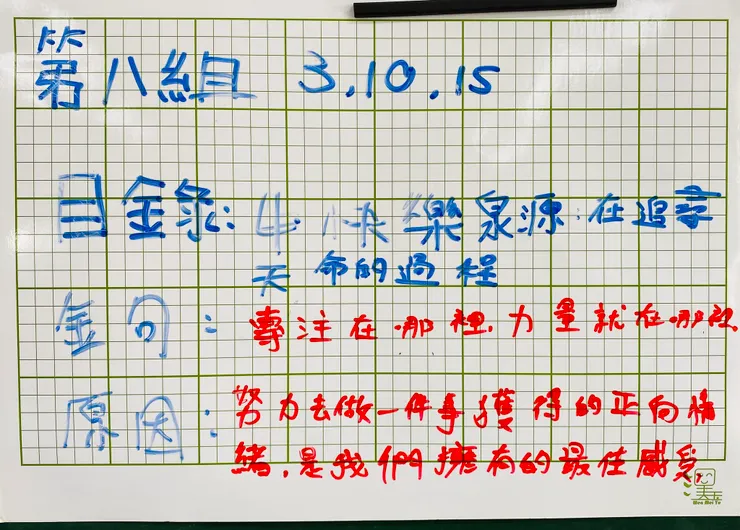 第八組 3.10.15
目金录: 4.快樂泉源:在追尋
天命的過程
金句:專注在哪裡,力量就在哪裡
原因:努力去做一件事獲得的正向情
緒,是我們擁有的最佳感受